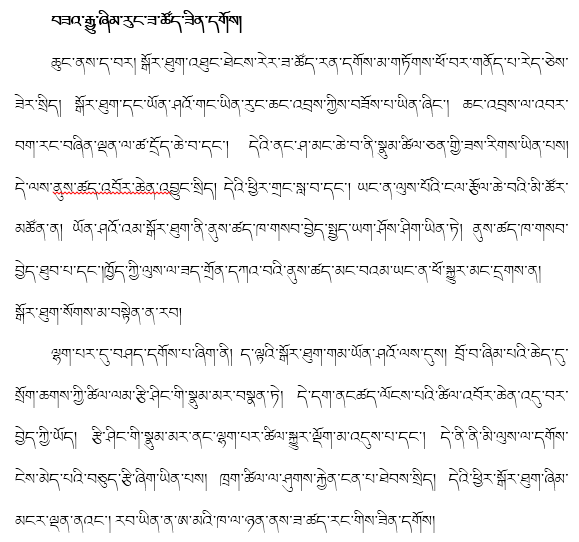 བཟའ་རྒྱུ་ཞིམ་རུང་ཟ་ཚོད་ཟིན་དགོས།
ཆུང་ནས་ད་བར། སྐོར་ཐུག་འཐུང་ཐེངས་རེར་ཟ་ཚོད་རན་དགོས་མ་གཏོགས་ཕོ་བར་གནོད་པ་རེད་ཅེས་
ཟེར་སྲིད། སྐོར་ཐུག་དང་ཡོན་ཤའོ་གང་ཡིན་རུང་ཆང་འབྲས་ཀྱིས་བཟོས་པ་ཡིན་ཞིང་། ཆང་འབྲས་ལ་འབར་
བག་རང་བཞིན་ལྡན་ལ་ཚ་དྲོད་ཆེ་བ་དང་། དེའི་ནང་ཤ་མང་ཆེ་བ་ནི་སྣུམ་ཚིལ་ཅན་གྱི་ཟས་རིགས་ཡིན་པས།
དེ་ལས་ནུས་ཚད་འབོར་ཆེན་འབྱུང་སྲིད། དེའི་ཕྱིར་གྲང་སླ་བ་དང་། ཡང་ན་ལུས་པོའི་ངལ་རྩོལ་ཆེ་བའི་མི་ཚོར་
མཚོན་ན། ཡོན་ཤའོ་འམ་སྐོར་ཐུག་ནི་ནུས་ཚད་ཁ་གསབ་བྱེད་སྤྱད་ཡག་ཤོས་ཤིག་ཡིན་ཏེ། ནུས་ཚད་ཁ་གསབ་
བྱེད་ཐུབ་པ་དང་།ཁྱོད་ཀྱི་ལུས་ལ་ཟད་གྲོན་དཀའ་བའི་ནུས་ཚད་མང་བའམ་ཡང་ན་ཕོ་སྐྱུར་མང་དྲགས་ན།
སྐོར་ཐུག་སོགས་མ་བསྟེན་ན་རབ།
ལྷག་པར་དུ་བཤད་དགོས་པ་ཞིག་ནི། ད་ལྟའི་སྐོར་ཐུག་གམ་ཡོན་ཤའོ་ལས་དུས། བྲོ་བ་ཞིམ་པའི་ཆེད་དུ་
སྲོག་ཆགས་ཀྱི་ཚིལ་ལམ་རྩི་ཤིང་གི་སྣུམ་མར་བསྣན་ཏེ། དེ་དག་ནངཚད་ལོངས་པའི་ཚིལ་འབོར་ཆེན་འདུ་བར་
བྱེད་ཀྱི་ཡོད། རྩི་ཤིང་གི་སྣུམ་མར་ནང་ལྷག་པར་ཚིལ་སྐྱུར་ལྡོག་མ་འདུས་པ་དང་། དེ་ནི་ནི་མི་ལུས་ལ་དགོས་
ངེས་མེད་པའི་བཅུད་རྩི་ཞིག་ཡིན་པས། ཁྲག་ཚིལ་ལ་ཤུགས་རྐྱེན་ངན་པ་ཐེབས་སྲིད། དེའི་ཕྱིར་སྐོར་ཐུག་ཞིམ་
མངར་ལྡན་ནའང་། རབ་ཡིན་ན་ཨ་མའི་ཁ་ལ་ཉན་ནས་ཟ་ཚད་རང་གིས་ཟིན་དགོས།